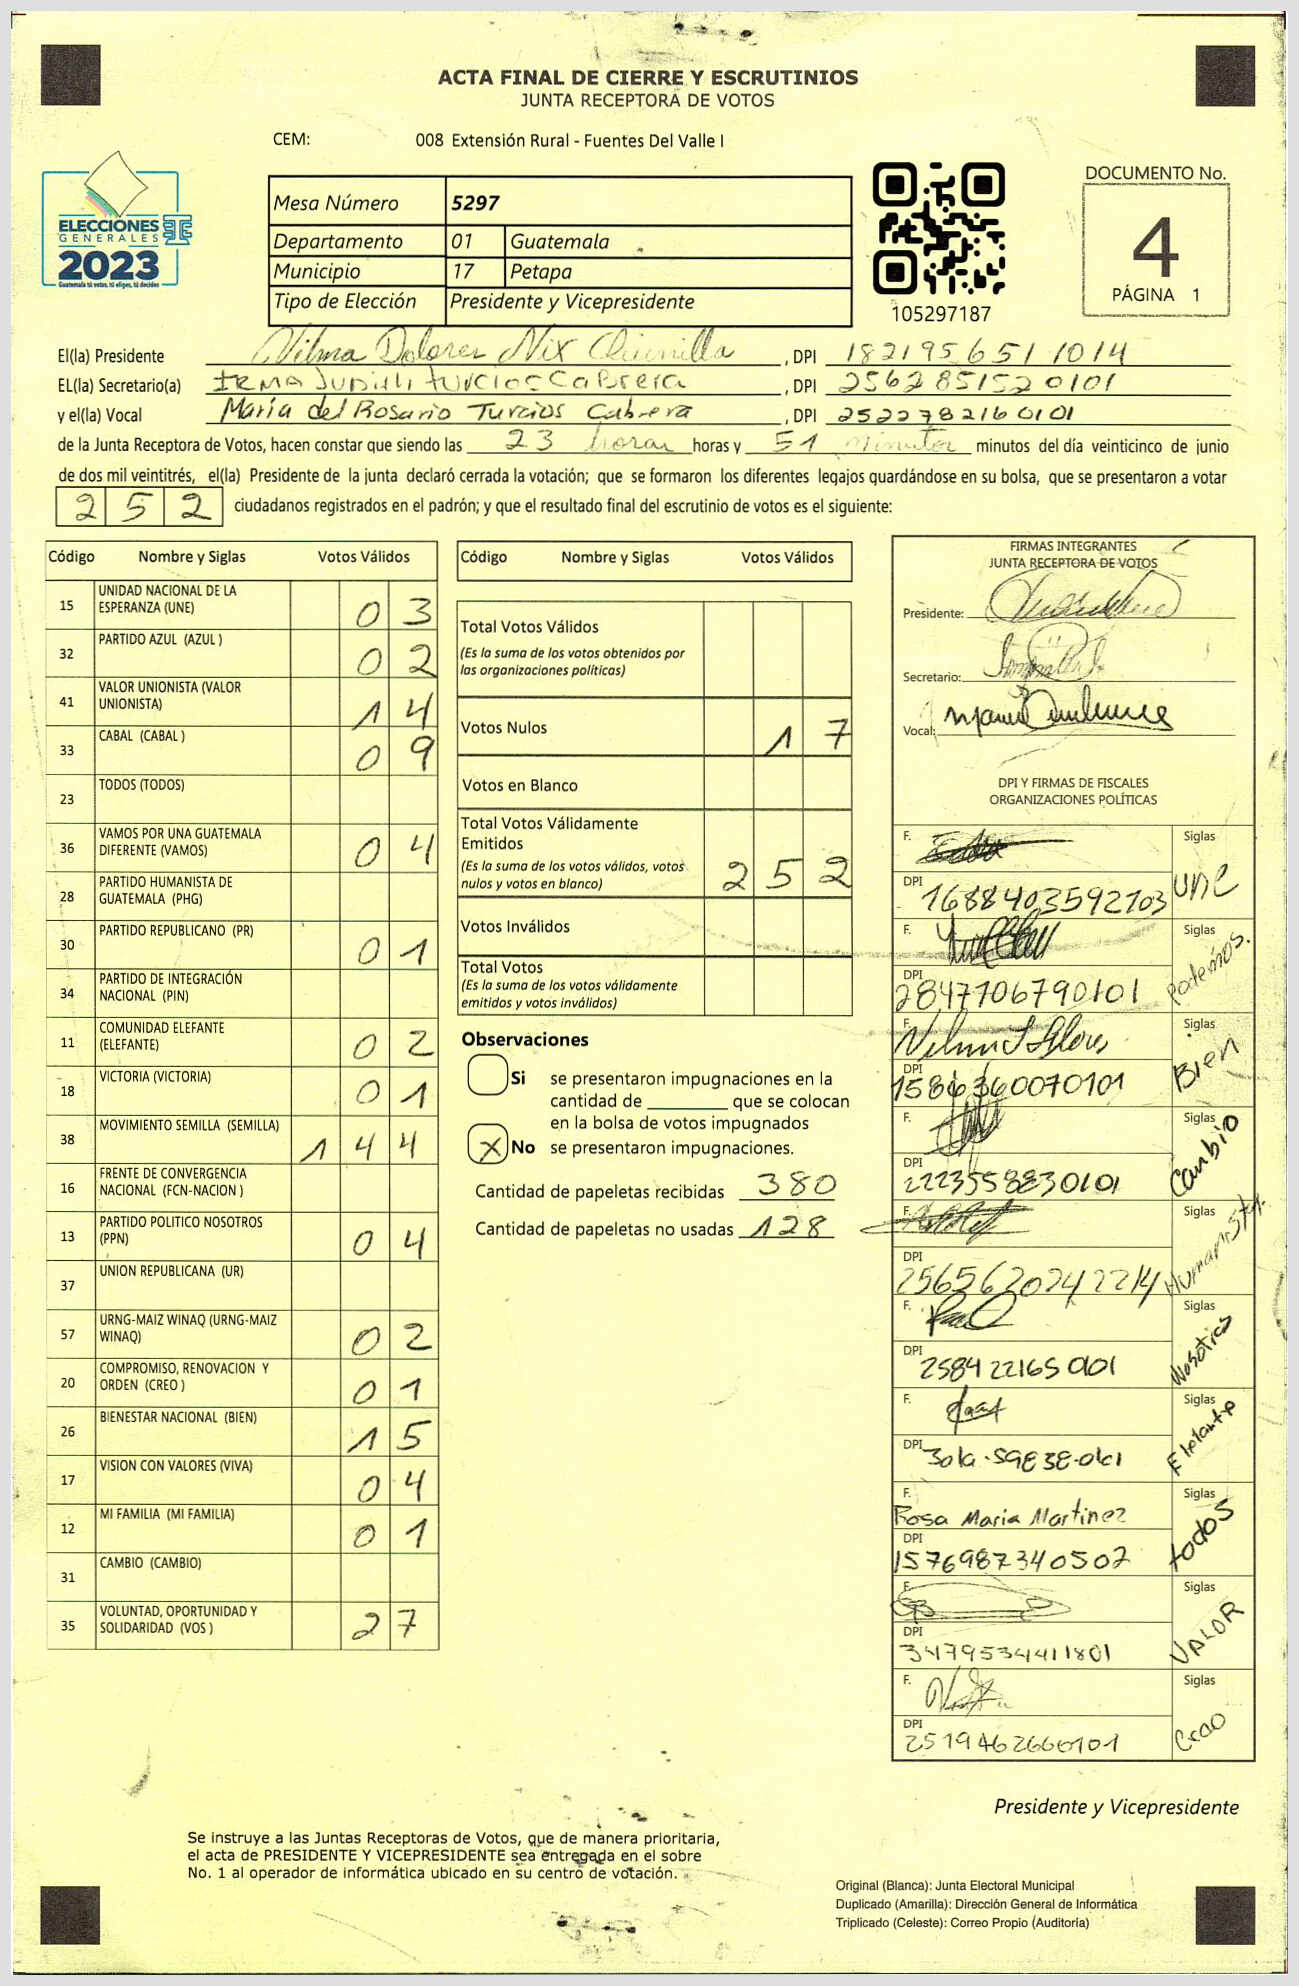 ACTA FINAL DE CIERRE Y ESCRUTINIOS
JUNTA RECEPTORA DE VOTOS
CEM: 008 Extensión Rural - Fuentes Del Valle I
ELECCIONES
GENERALES
2023
Guatemala tú votas, tú eliges, tú decides
Mesa Número 5297
Departamento 01 Guatemala
Municipio 17 Petapa
Tipo de Elección Presidente y Vicepresidente
105297187
DOCUMENTO No.
4
PÁGINA 1
El(la) Presidente Vilma Dolores Nix Chinilla, DPI 1821956511014
EL(la) Secretario(a) IRMA JUDITH turcios Cabrera, DPI 2562851520101
y el(la) Vocal María del Rosario Turcios Cabrera, DPI 2522782160101
de la Junta Receptora de Votos, hacen constar que siendo las 23 horas horas y 51 minutos minutos del día veinticinco de junio
de dos mil veintitrés, el(la) Presidente de la junta declaró cerrada la votación; que se formaron los diferentes legajos guardándose en su bolsa, que se presentaron a votar
252 ciudadanos registrados en el padrón; y que el resultado final del escrutinio de votos es el siguiente:
Código Nombre y Siglas Votos Válidos
15 UNIDAD NACIONAL DE LA ESPERANZA (UNE) 03
32 PARTIDO AZUL (AZUL ) 02
41 VALOR UNIONISTA (VALOR UNIONISTA) 14
33 CABAL (CABAL ) 09
23 TODOS (TODOS)
36 VAMOS POR UNA GUATEMALA DIFERENTE (VAMOS) 04
28 PARTIDO HUMANISTA DE GUATEMALA (PHG)
30 PARTIDO REPUBLICANO (PR) 01
34 PARTIDO DE INTEGRACIÓN NACIONAL (PIN)
11 COMUNIDAD ELEFANTE (ELEFANTE) 02
18 VICTORIA (VICTORIA) 01
38 MOVIMIENTO SEMILLA (SEMILLA) 144
16 FRENTE DE CONVERGENCIA NACIONAL (FCN-NACION )
13 PARTIDO POLITICO NOSOTROS (PPN) 04
37 UNION REPUBLICANA (UR)
57 URNG-MAIZ WINAQ (URNG-MAIZ WINAQ) 02
20 COMPROMISO, RENOVACION Y ORDEN (CREO ) 01
26 BIENESTAR NACIONAL (BIEN) 15
17 VISION CON VALORES (VIVA) 04
12 MI FAMILIA (MI FAMILIA) 01
31 CAMBIO (CAMBIO)
35 VOLUNTAD, OPORTUNIDAD Y SOLIDARIDAD (VOS ) 27
Código Nombre y Siglas Votos Válidos
Total Votos Válidos
(Es la suma de los votos obtenidos por
las organizaciones políticas)
Votos Nulos 17
Votos en Blanco
Total Votos Válidamente
Emitidos
(Es la suma de los votos válidos, votos
nulos y votos en blanco) 252
Votos Inválidos
Total Votos
(Es la suma de los votos válidamente
emitidos y votos inválidos)
Observaciones
Si se presentaron impugnaciones en la
cantidad de ________ que se colocan
en la bolsa de votos impugnados
X No se presentaron impugnaciones.
Cantidad de papeletas recibidas 380
Cantidad de papeletas no usadas 128
FIRMAS INTEGRANTES
JUNTA RECEPTORA DE VOTOS
Presidente:
Secretario:
Vocal:
DPI Y FIRMAS DE FISCALES
ORGANIZACIONES POLÍTICAS
F. Siglas
DPI 1688403592103 UNE
F. Siglas
DPI 2847706790101 Podemos.
F. Siglas
DPI 1586360070101 Bien
F. Siglas
DPI 2223558830101 Cambio
F. Siglas
DPI 2565620242214 Humanista
F. Siglas
DPI 2584221650101 Nosotros
F. Siglas
DPI Elefante
F. Rosa Maria Martinez Siglas
DPI 1576987340507 todos
F. Siglas
DPI 3479534411801 VALOR
F. Siglas
DPI 2519462660101 Creo
Presidente y Vicepresidente
Se instruye a las Juntas Receptoras de Votos, que de manera prioritaria,
el acta de PRESIDENTE Y VICEPRESIDENTE sea entregada en el sobre
No. 1 al operador de informática ubicado en su centro de votación.
Original (Blanca): Junta Electoral Municipal
Duplicado (Amarilla): Dirección General de Informática
Triplicado (Celeste): Correo Propio (Auditoría)